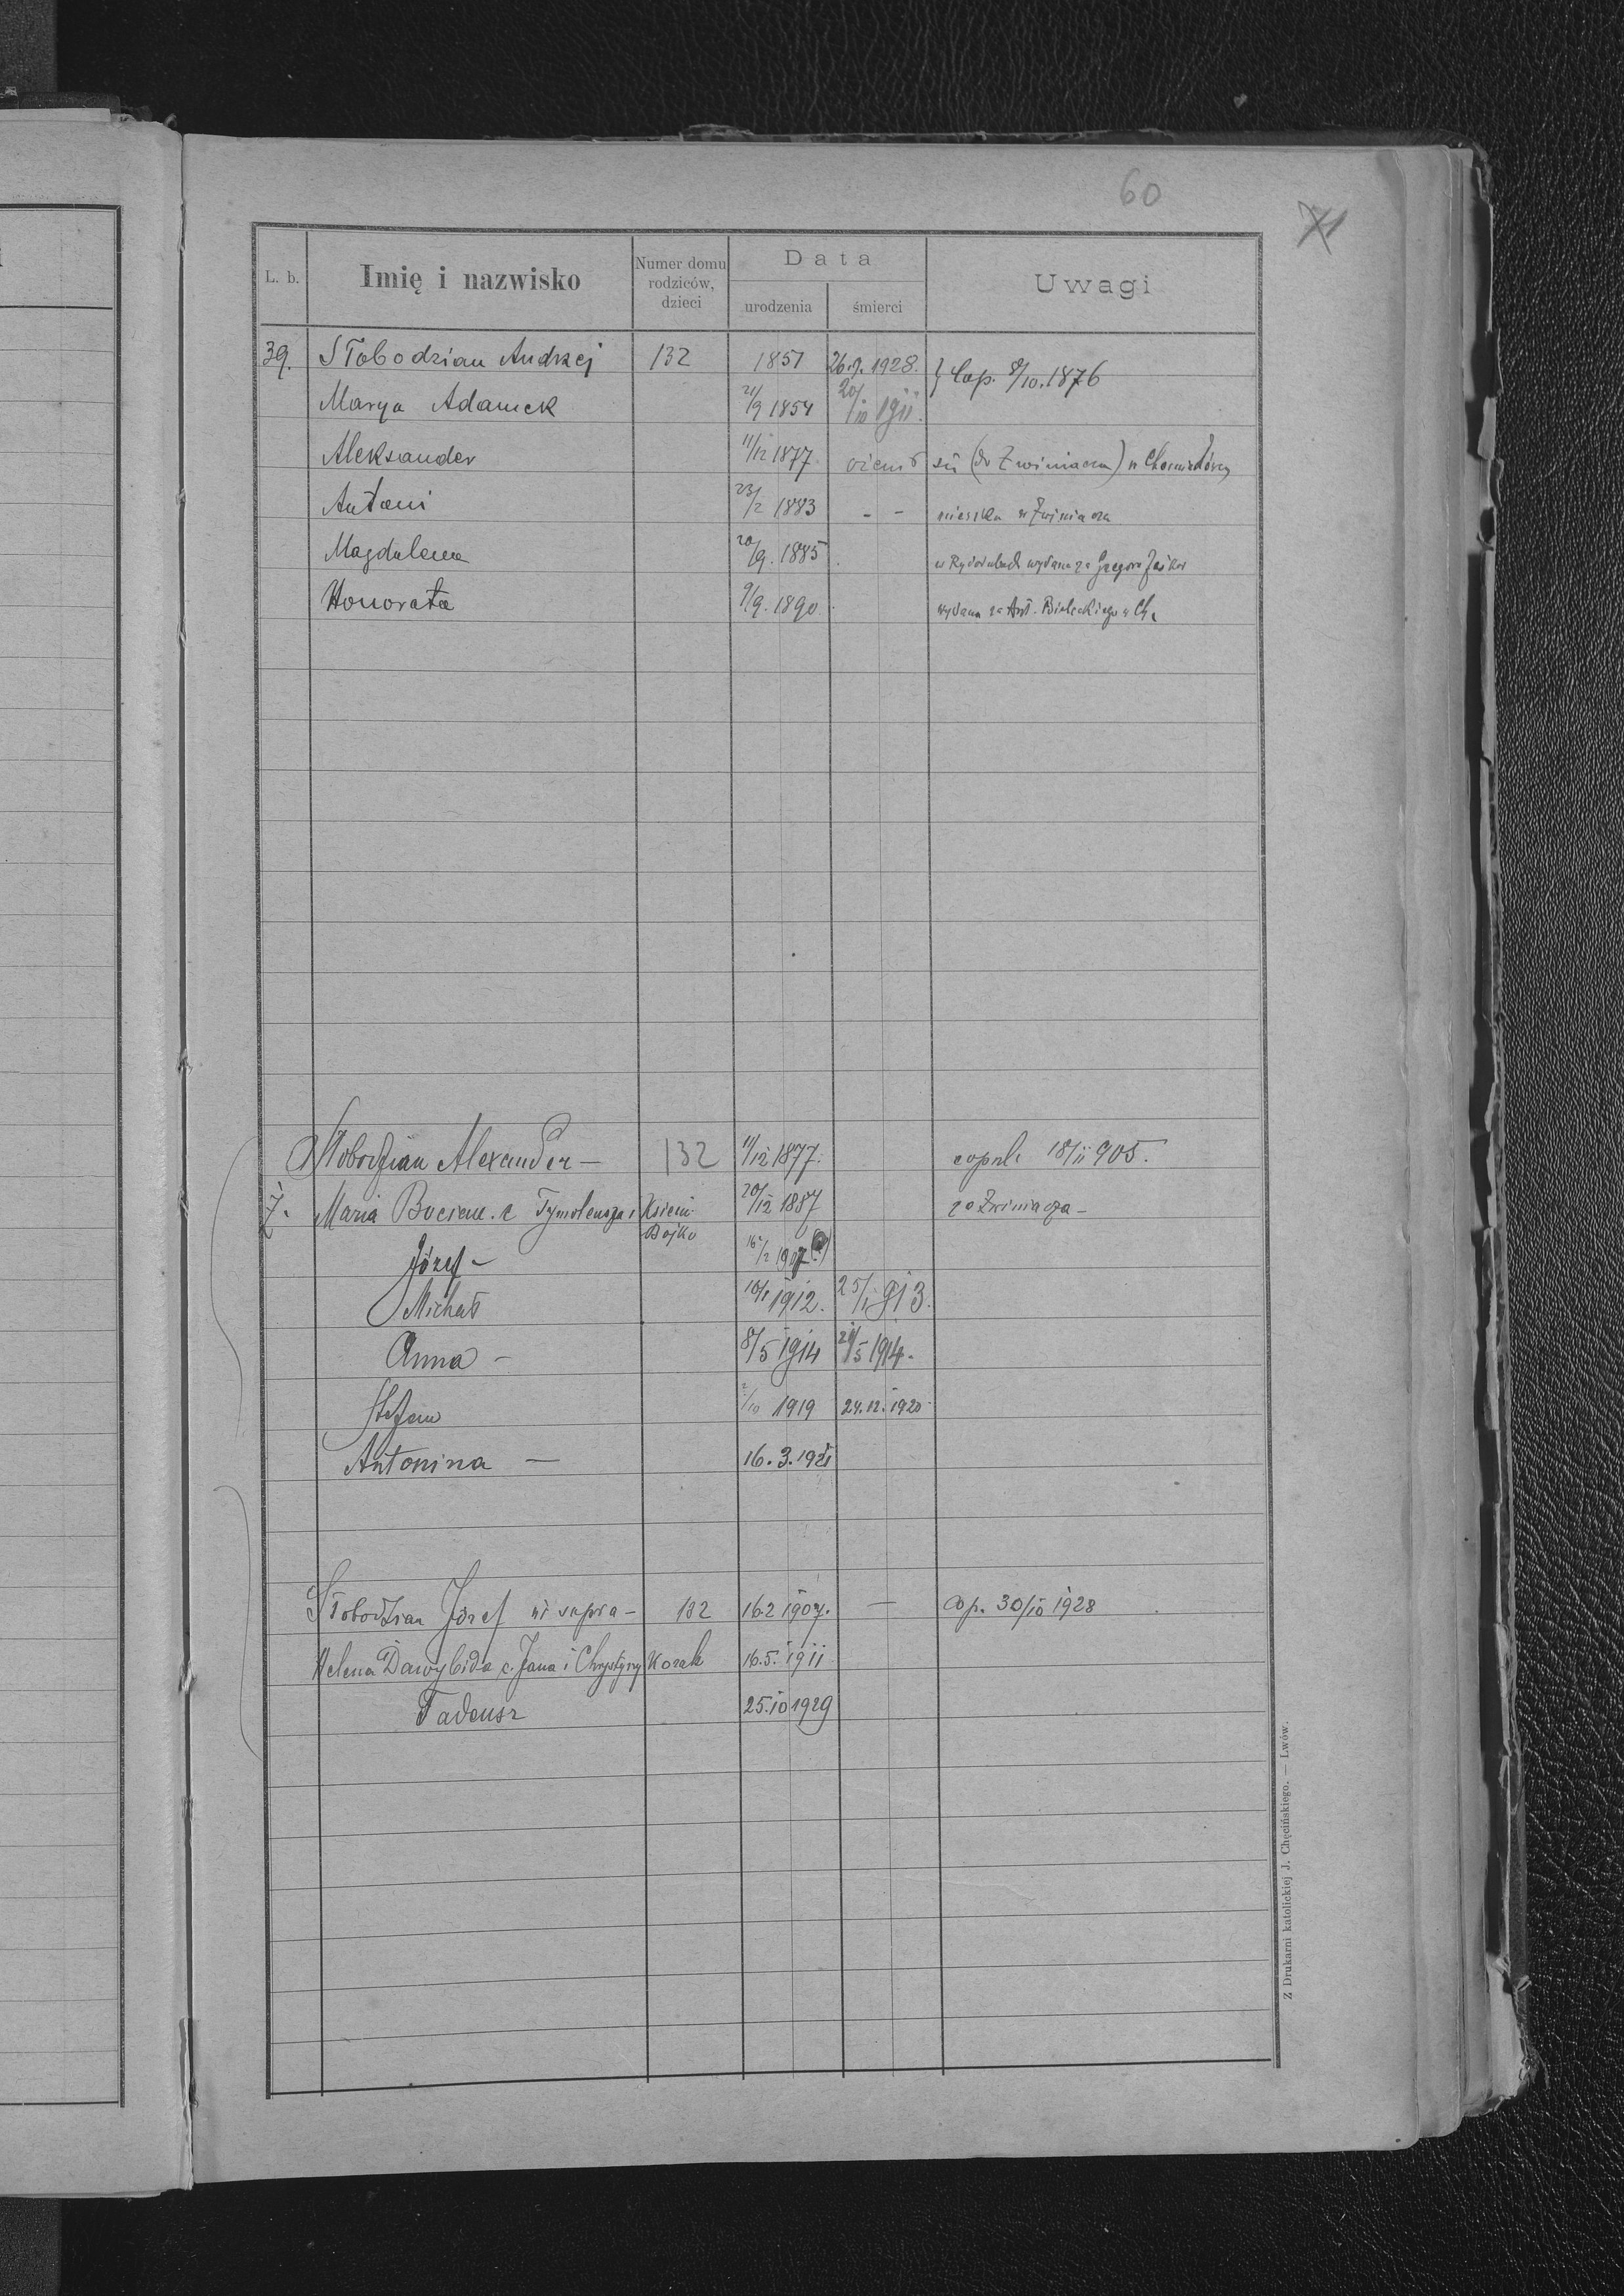 60
71
L. b. Imię i nazwisko Numer domu rodziców, dzieci Data urodzenia śmierci Uwagi
39. Słobodzian Andrzej 132 1851 26.9.1928. } Cop. 8/10.1876
Marya Adamek 21/9 1854 20/10 1911.
Aleksander 11/12 1877. ożenił się (do Zwiniacza) w
Antoni 23/2 1883 - - mieszka w Zwiniaczu
Magdalena 20/9. 1885 wydana za Grzegorz
Honorata 9/9. 1890 wydana za Ant. Bieleckiego w Ch.
Słobodzian Alexander - 132 11/12 1877. copul. 18/11 905.
ż. Maria Bocian c. Tymoteusza i Kseni Bojko 20/12 1887 ze Zwiniacza -
Józef - 16/2 907
Michał 10/1 1912. 25/1 913.
Anna - 8/5 1914 21/5 1914.
Stefan 2/10 1919 24.12.1920
Antonina - 16.3.1921
Słobodzian Józef ut supra - 132 16.2 1907. - Cop. 30/10 1928
Helena Dawybida c. Jana i Chrystyny Kozak 16.5.1911
Tadeusz 25.10 1929
Z Drukarni katolickiej J. Chęcińskiego. — Lwów.